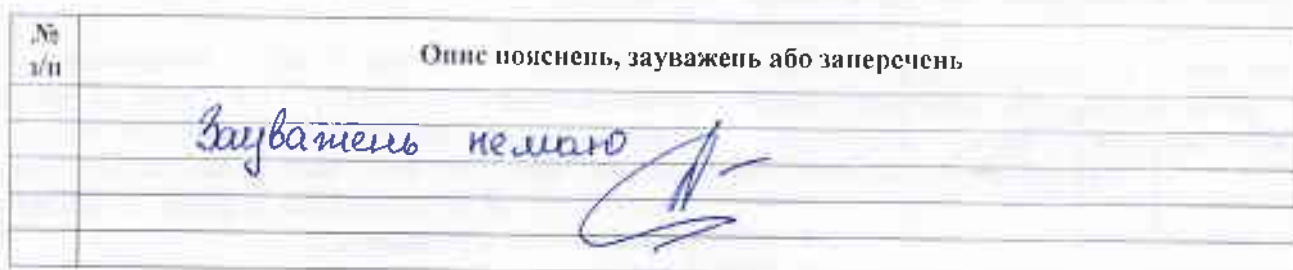 №
з/п
Опис пояснень, зауважень або заперечень
Зауважень немаю